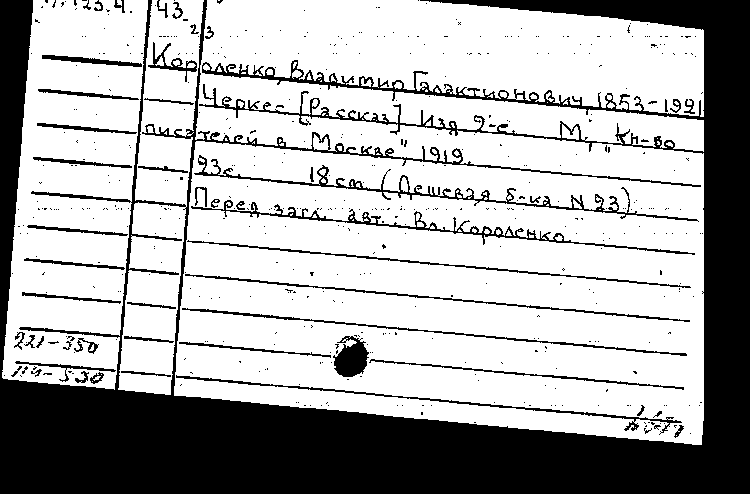 43.
23
Короленко, Владимир Галактионович, 1853-1921
Черкес [Рассказ] Изд 2-е. М., „Кн-во
писателей в Москве", 1919.
23с. 18 cm (Дешевая б-ка N 23).
Перед загл. авт.: Вл. Короленко.
221-350